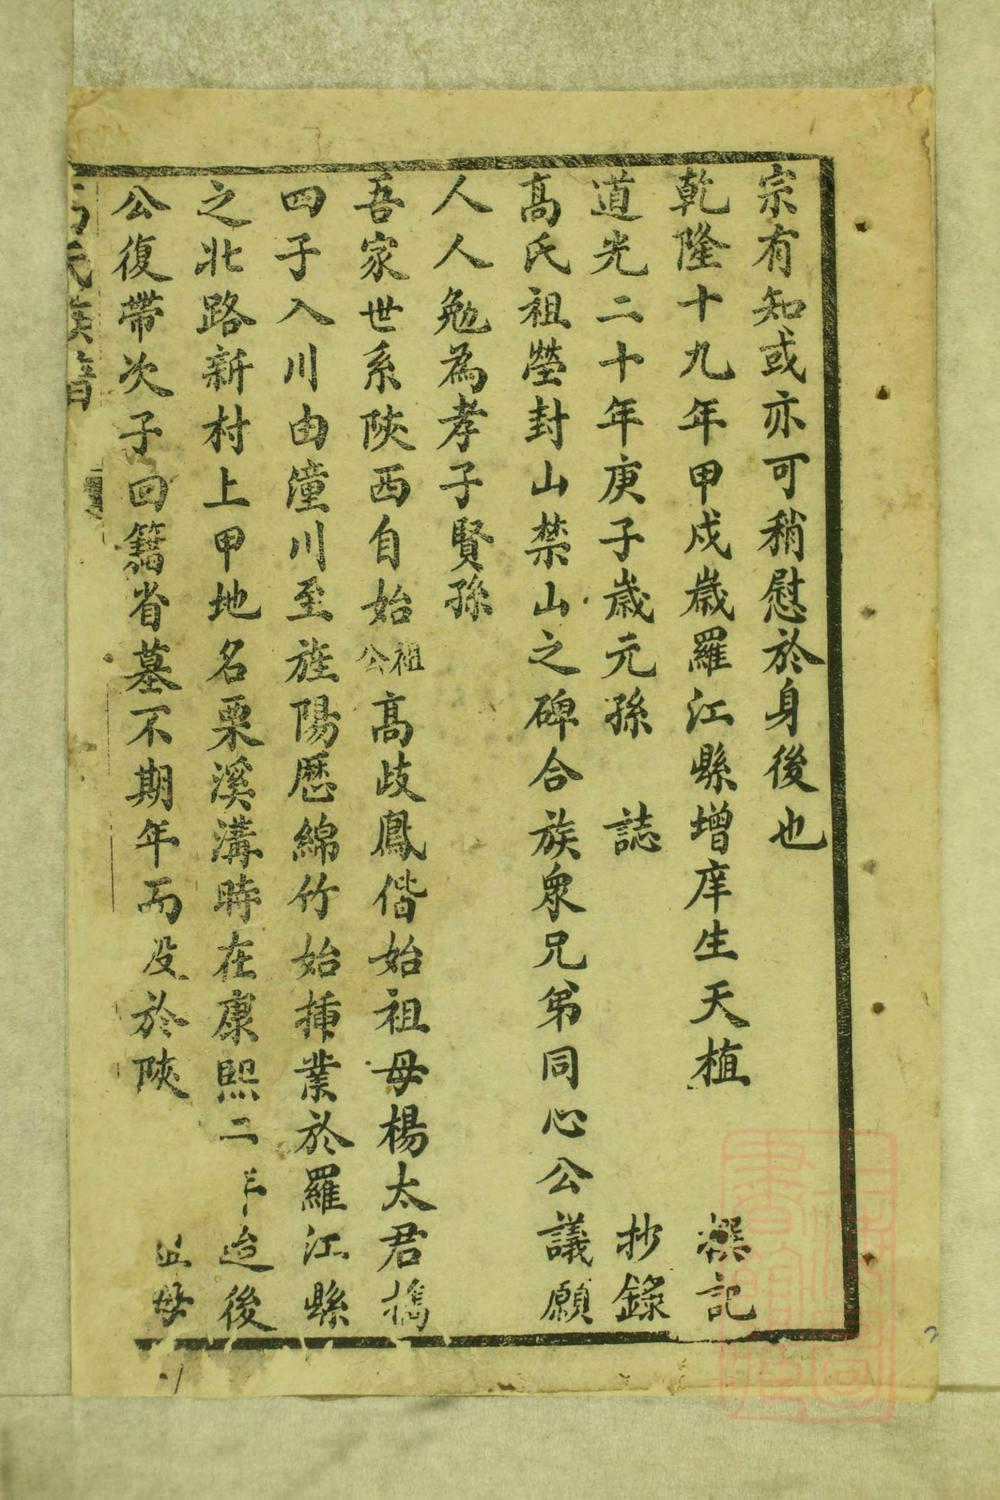 宗有知或亦可稍慰於身後也
乾隆十九年甲戍歲羅江縣增庠生天植 撰記
道光二十年庚子歲元孫 誌 抄錄
高氏祖塋封山禁山之碑合族衆兄弟同心公議願
人人勉為孝子賢孫
吾家世系陝西自始祖公高歧鳳偕始祖母楊太君攜
四子入川由潼川至旌陽歷綿竹始揷業於羅江縣
之北路新村上甲地名栗溪溝時在康熙二年迨後
公復帶次子回籍省墓不期年而没於陝 母
高氏族譜